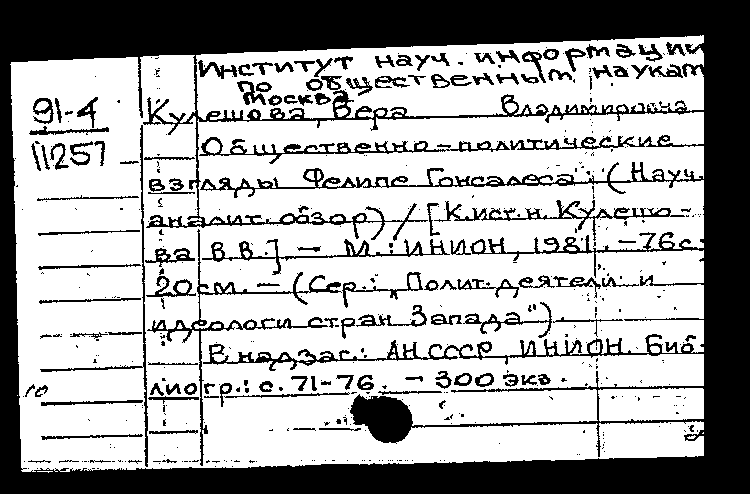 Институт науч. информации
по общественным наукам
Москва
91-4
11257
Кулешова, Вера Владимировна
Общественно-политические
взгляды Фелипе Гонсалеса: (Науч.
аналит. обзор) / [К.ист.н. Кулешо-
ва В.В.] – М.: ИНИОН, 1981. – 76 с;
20 см. – (Сер.: „Полит. деятели и
идеологи стран Запада").
В надзаг.: АН СССР, ИНИОН. Биб-
лиогр.: с. 71-76. – 300 экз.
10